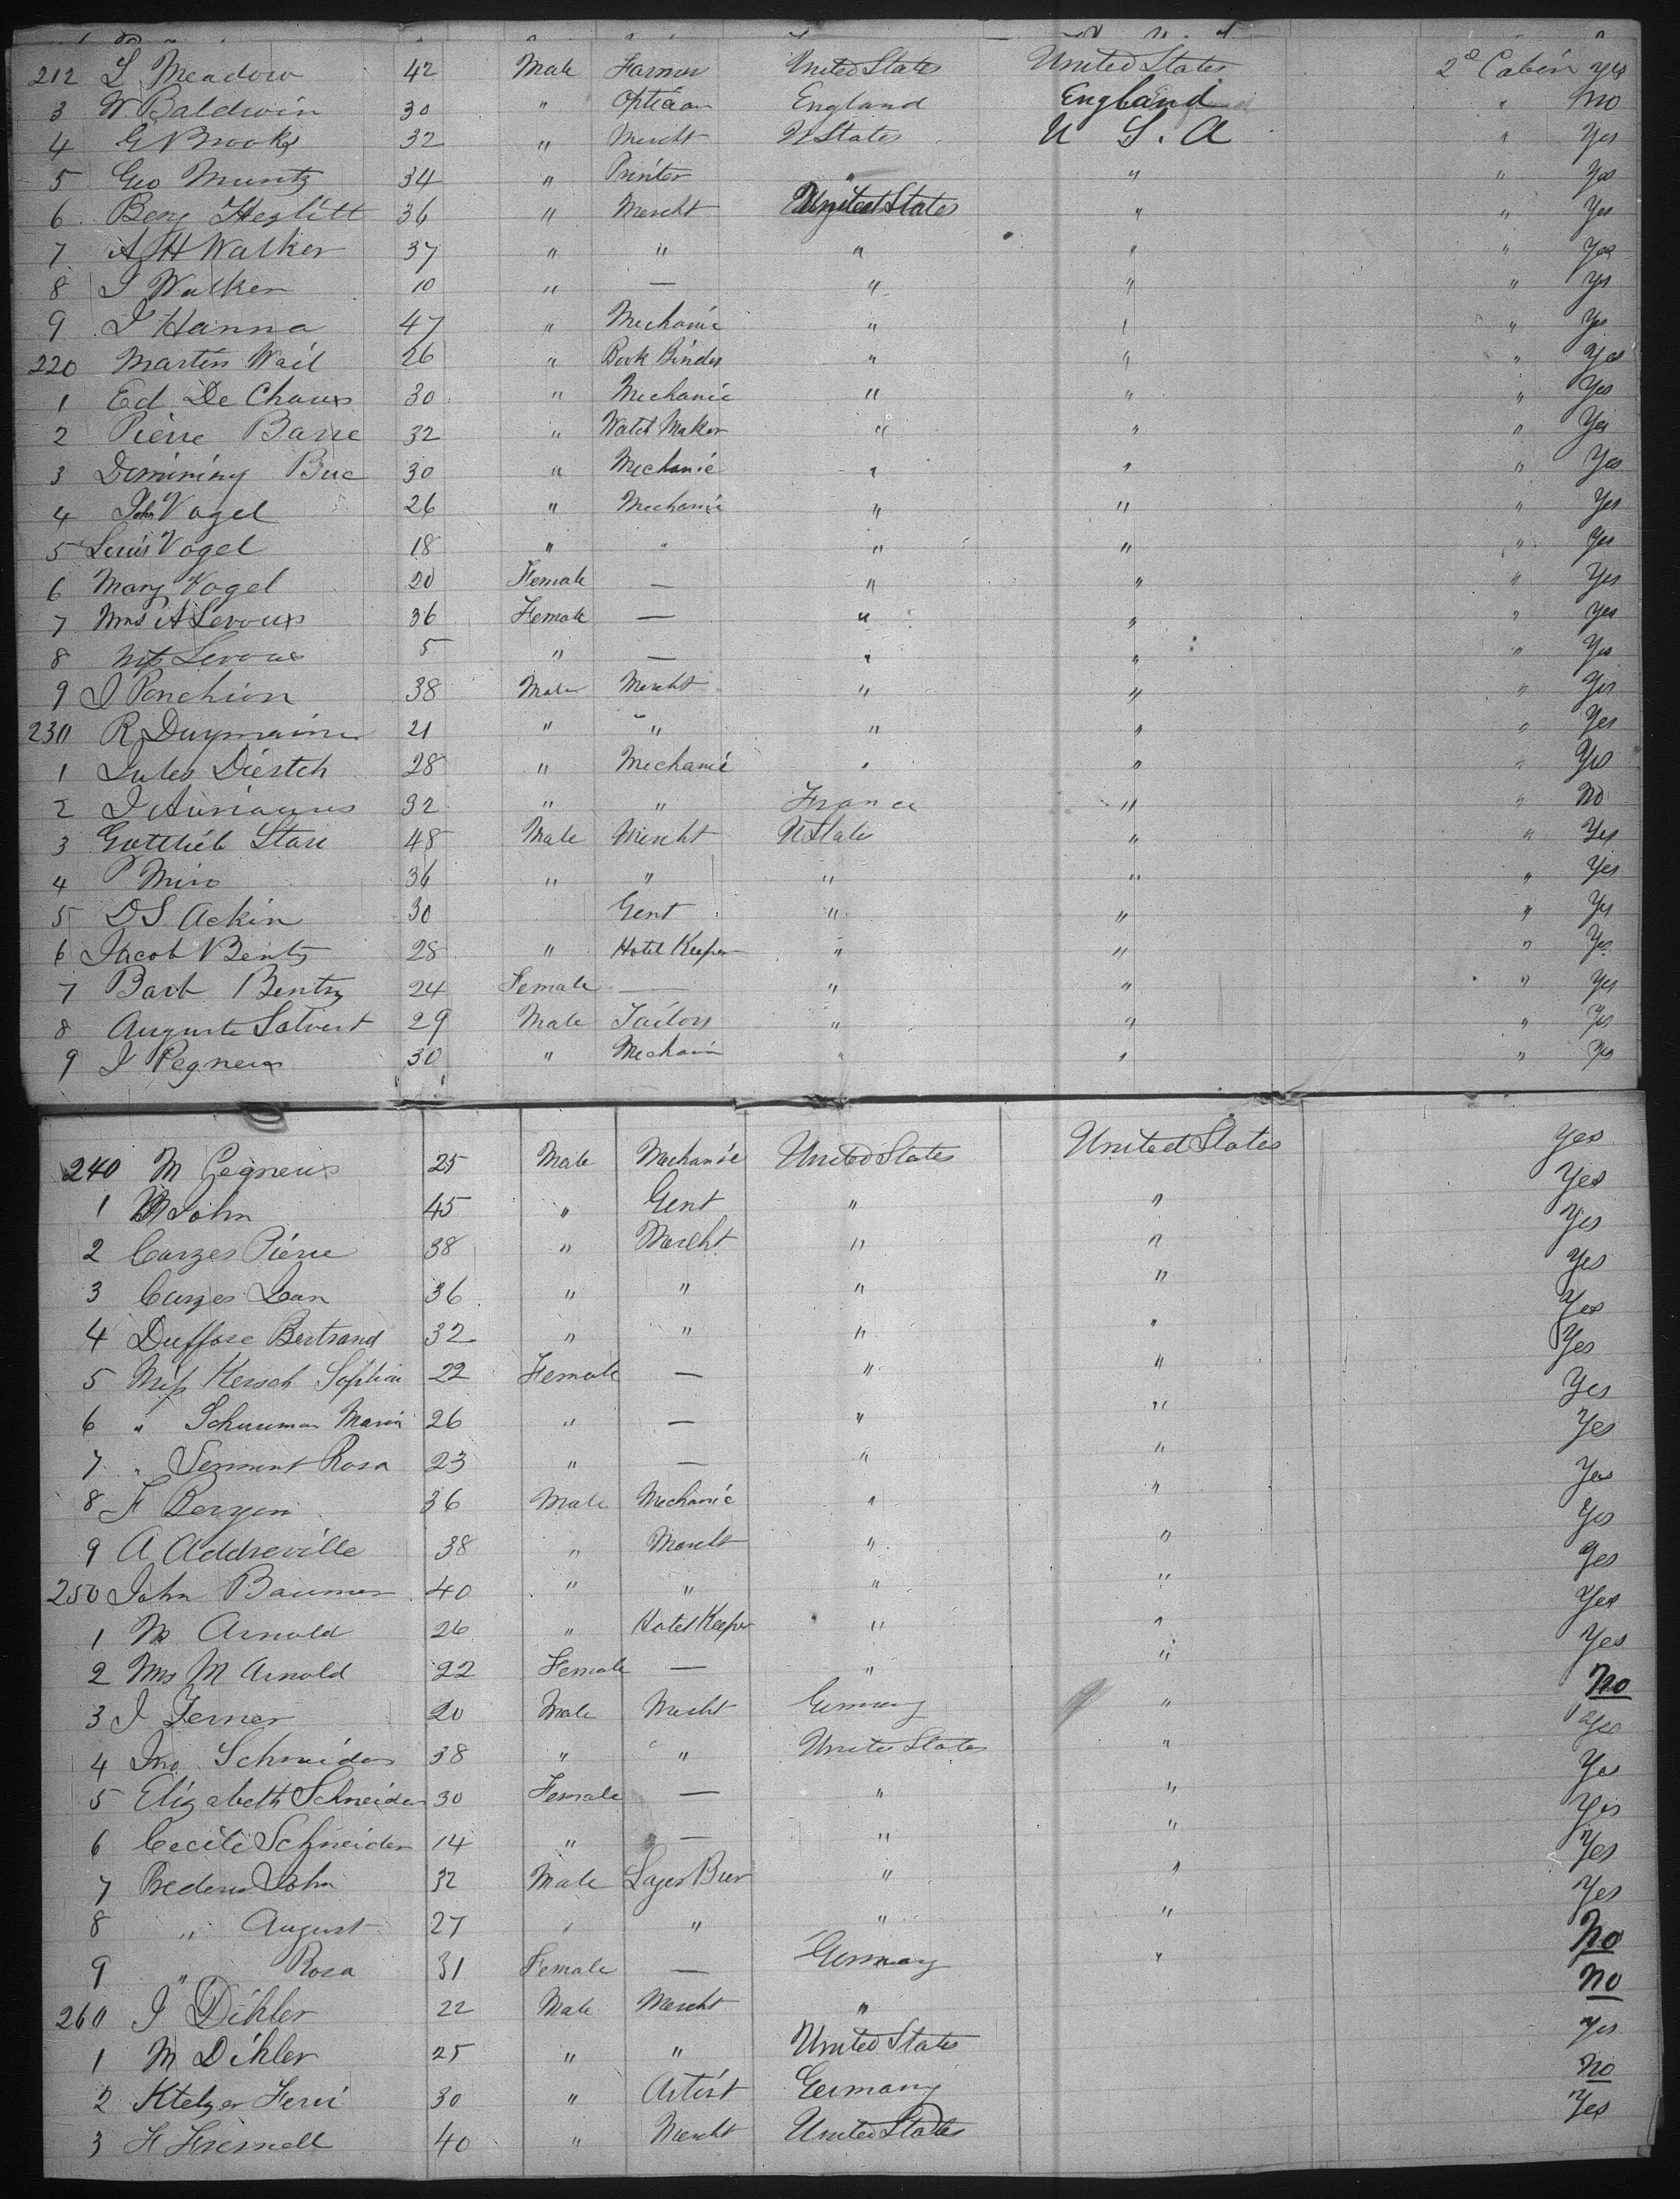 212 L Meadow 42 Male Farmer United States United States 2d Cabin yes
3 W. Baldwin 30 " Optician England England " No
4 G Brooks 32 " Mercht U States U S. A " Yes
5 Geo Muntz 34 " Printer " " " Yes
6 Benj Heglitt 36 " Mercht United States " " Yes
7 A H Walker 37 " " " " " Yes
8 J Walker 10 " — " " " Yes
9 J Hanna 47 " Mechanic " " " Yes
220 Martin Wail 26 " Book Binder " " " Yes
1 Ed De Chaux 30 " Mechanic " " " Yes
2 Pierre Barre 32 " Watch Maker " " " Yes
3 Buc 30 " Mechanic " " " Yes
4 John Vogel 26 " Mechanic " " " Yes
5 Louis Vogel 18 " " " " " Yes
6 Mary Vogel 20 Female — " " " Yes
7 Mrs A Leroux 36 Female — " " " Yes
8 Miss Leroux 5 " — " " " Yes
9 J Ponchion 38 Male Mercht " " " Yes
230 R 21 " " " " " Yes
1 Jules Diestch 28 " Mechanic " " " Yes
2 J 32 " " France " " No
3 Gottlieb Stare 48 Male Mercht U States " " Yes
4 P Miro 36 " " " " " Yes
5 D S Ackin 30 Gent " " " Yes
6 Jacob Bentz 28 " Hotel Keeper " " " Yes
7 Barb Bentz 24 Female — " " " Yes
8 Auguste Salvert 29 Male Tailors " " " Yes
9 J Pegneux 30 " Mechanic " " " Yes
240 M Cogneux 25 Male Mechanic United States United States Yes
1 M John 45 " Gent " " Yes
2 Carzes Pierre 38 " Mercht " " Yes
3 Carzes Jean 36 " " " " Yes
4 Duffose Bertrand 32 " " " " Yes
5 Miss Kersch Sophia 22 Female — " " Yes
6 " Schuuman Maria 26 " — " " Yes
7 " Serment Rosa 23 " — " " Yes
8 F Bergen 36 Male Mechanic " " Yes
9 A Addreville 38 " Mercht " " Yes
250 John Baumer 40 " " " " Yes
1 M Arnold 26 " Hotel Keeper " " Yes
2 Mrs M Arnold 22 Female — " " Yes
3 J Ferner 20 Male Mercht Germany " No
4 Jno Schneider 38 " " United States " Yes
5 Elizabeth Schneider 30 Female — " " Yes
6 Cecile Schneider 14 " — " " Yes
7 John 32 Male Lager Bier " " Yes
8 " August 27 " " " " Yes
9 " Rosa 31 Female — Germany " No
260 J Dihler 22 Male Mercht " No
1 M Dihler 25 " " United States Yes
2 Ktelzer Ferri 30 " Artist Germany No
3 F Fremell 40 " Mercht United States Yes